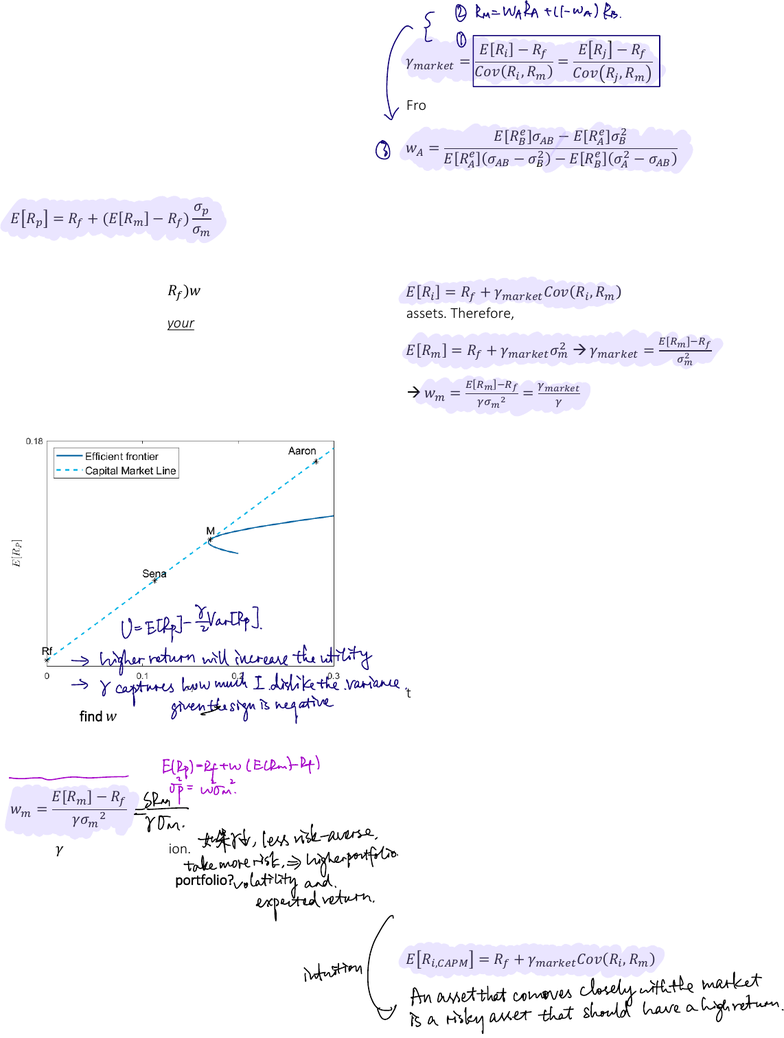 ② R_M = W_A R_A + (1-W_A) R_B.
①
γ_market = (E[R_i] − R_f)/Cov(R_i, R_m) = (E[R_j] − R_f)/Cov(R_j, R_m)
Fro
③ w_A = (E[R_B^e]σ_AB − E[R_A^e]σ_B^2)/(E[R_A^e](σ_AB − σ_B^2) − E[R_B^e](σ_A^2 − σ_AB))
E[R_p] = R_f + (E[R_m] − R_f) σ_p/σ_m
R_f)w
your
E[R_i] = R_f + γ_market Cov(R_i, R_m)
assets. Therefore,
E[R_m] = R_f + γ_market σ_m^2 → γ_market = (E[R_m]−R_f)/σ_m^2
→ w_m = (E[R_m]−R_f)/(γσ_m^2) = γ_market/γ
0.18
Efficient frontier
Capital Market Line
Aaron
M
E[R_p]
Sena
U = E[Rp] - γ/2 Var[Rp].
Rf
→ higher return will increase the utility
0 0.1 0.2 0.3
→ γ captures how much I dislike the variance,
t
given the sign is negative
find w
E(Rp) = Rf + w (E(Rm) - Rf)
σp² = w²σm².
w_m = (E[R_m] − R_f)/(γσ_m^2) = SRm/(γσm).
γ
ion.
如果γ↓, less risk-averse,
take more risk, ⇒ higher portfolio
portfolio?
volatility and
expected return.
intuition
E[R_i,CAPM] = R_f + γ_market Cov(R_i, R_m)
An asset that comoves closely with the market
is a risky asset that should have a high return.